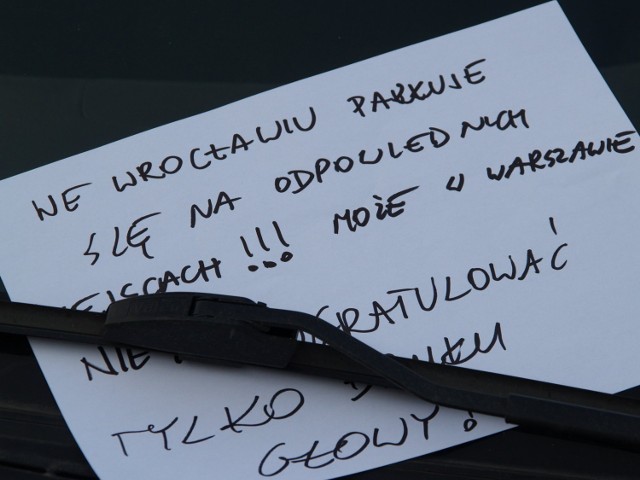 WE WROCŁAWIU PARKUJE
SIĘ NA ODPOWIEDNICH
EJSCACH!!! MOŻE U WARSZAWIE
NIE GRATULOWAĆ
TYLKO
GŁOWY!